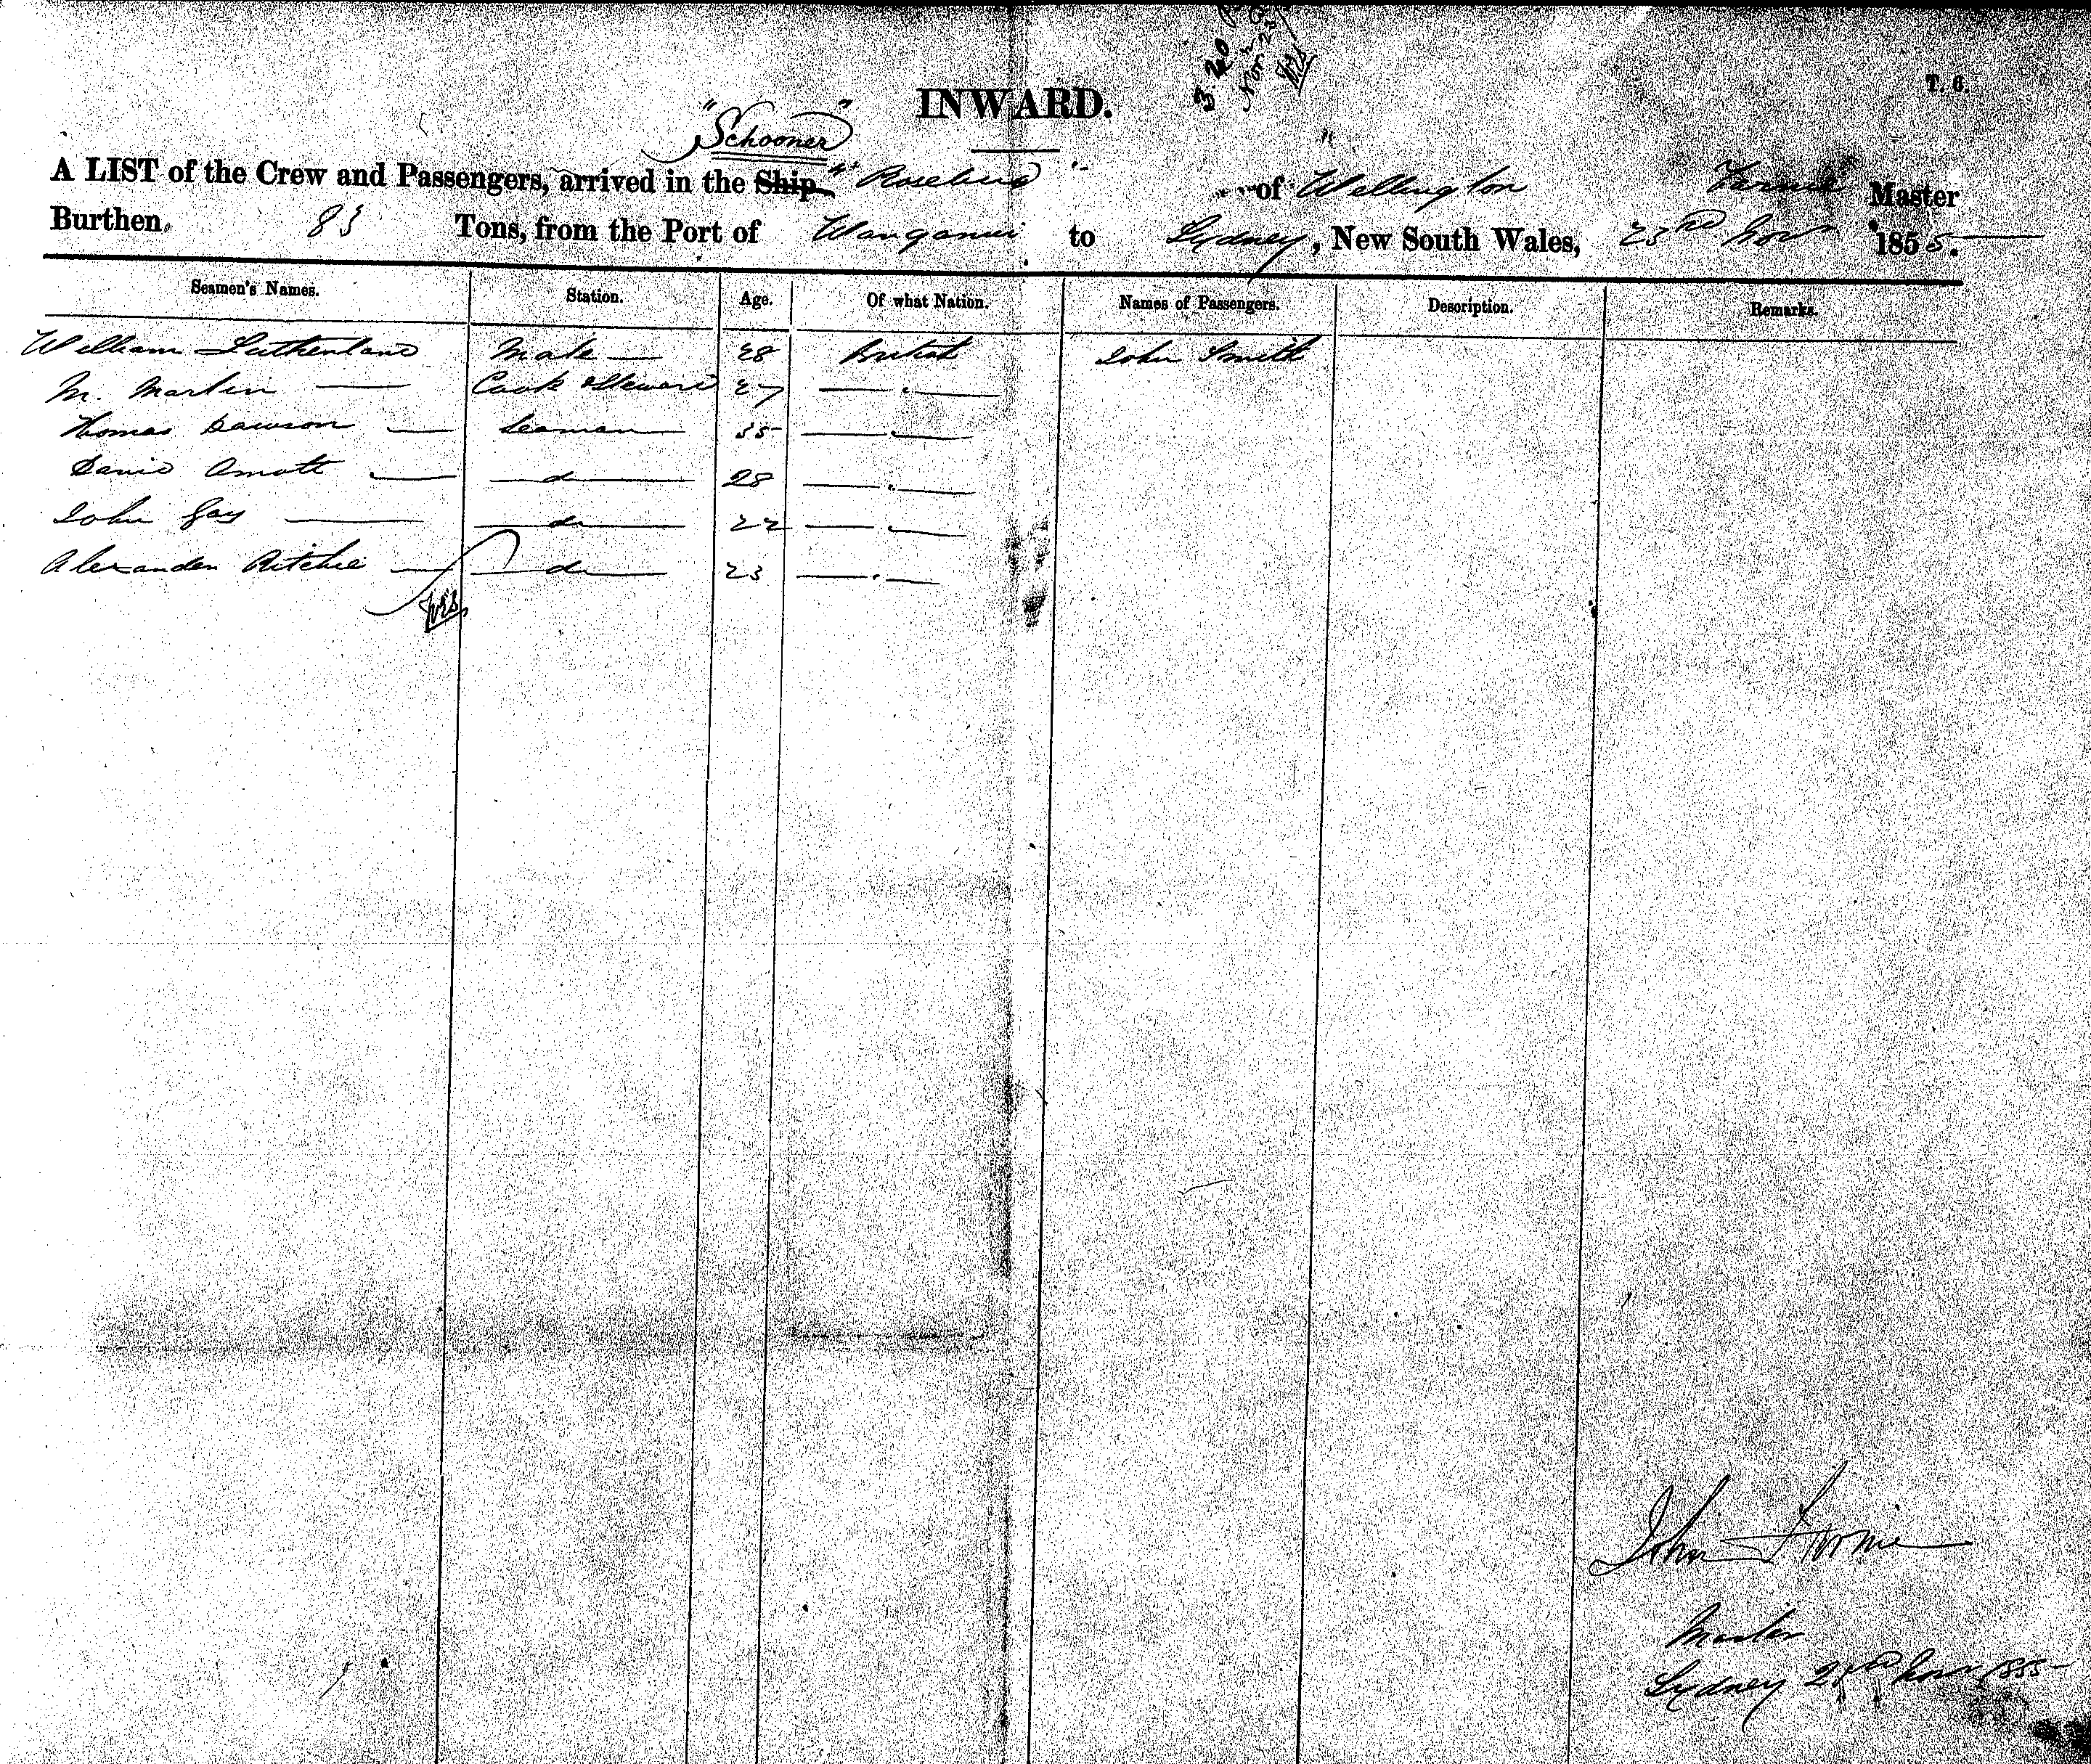 3 40
Nov 2
T. 6.
INWARD.
"Schooner"
A LIST of the Crew and Passengers, arrived in the Ship "Rosebud" of Wellington Fornie Master
Burthen 83 Tons, from the Port of Wanganui to Sydney, New South Wales, 23rd Novr 1855.
Seamen's Names. Station. Age. Of what Nation. Names of Passengers. Description. Remarks.
William Sutherland Mate 28 British John Smith
M. Martin Cook & Steward 27 "
Thomas Dawson Seaman 35 "
David Amott do 28 "
John Gay do 22 "
Alexander Ritchie do 23 "
John Fornie
Master
Sydney 23rd Novr 1855